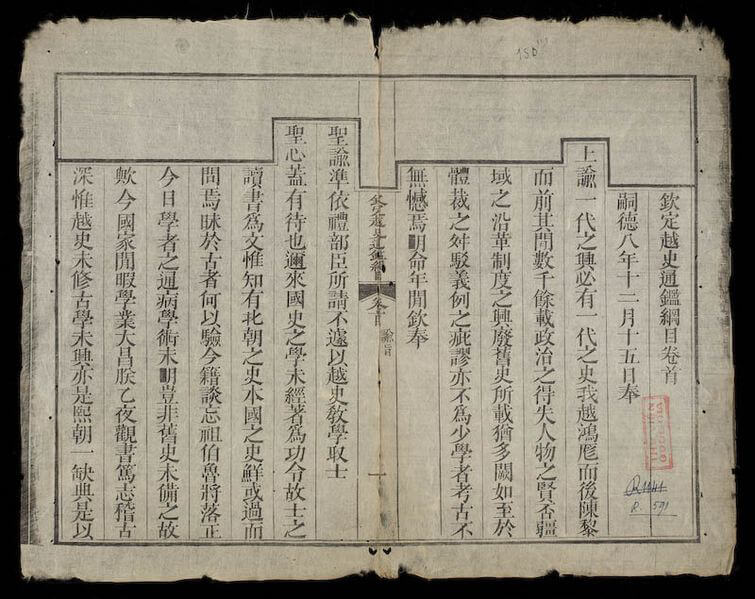 欽定越史通鑑綱目卷首
嗣德八年十二月十五日奉
上諭一代之興必有一代之史我越鴻厖而後陳黎
而前其間數千餘載政治之得失人物之賢否疆
域之沿革制度之興廢舊史所載猶多闕如至於
體裁之舛駁義例之疵謬亦不爲少學者考古不
無憾焉明命年間欽奉
欽定越史通鑑綱目 卷首 諭旨 一
聖諭準依禮部臣所請不遽以越史敎學取士
聖心蓋有待也邇來國史之學未經著爲功令故士之
讀書爲文惟知有北朝之史本國之史鮮或過而
問焉昧於古者何以驗今籍談忘祖伯魯將落正
今日學者之通病學術未明豈非舊史未備之故
歟今國家閒暇學業大昌朕乙夜觀書篤志稽古
深惟越史未修古學未興亦是熙朝一缺典是以
R. 591